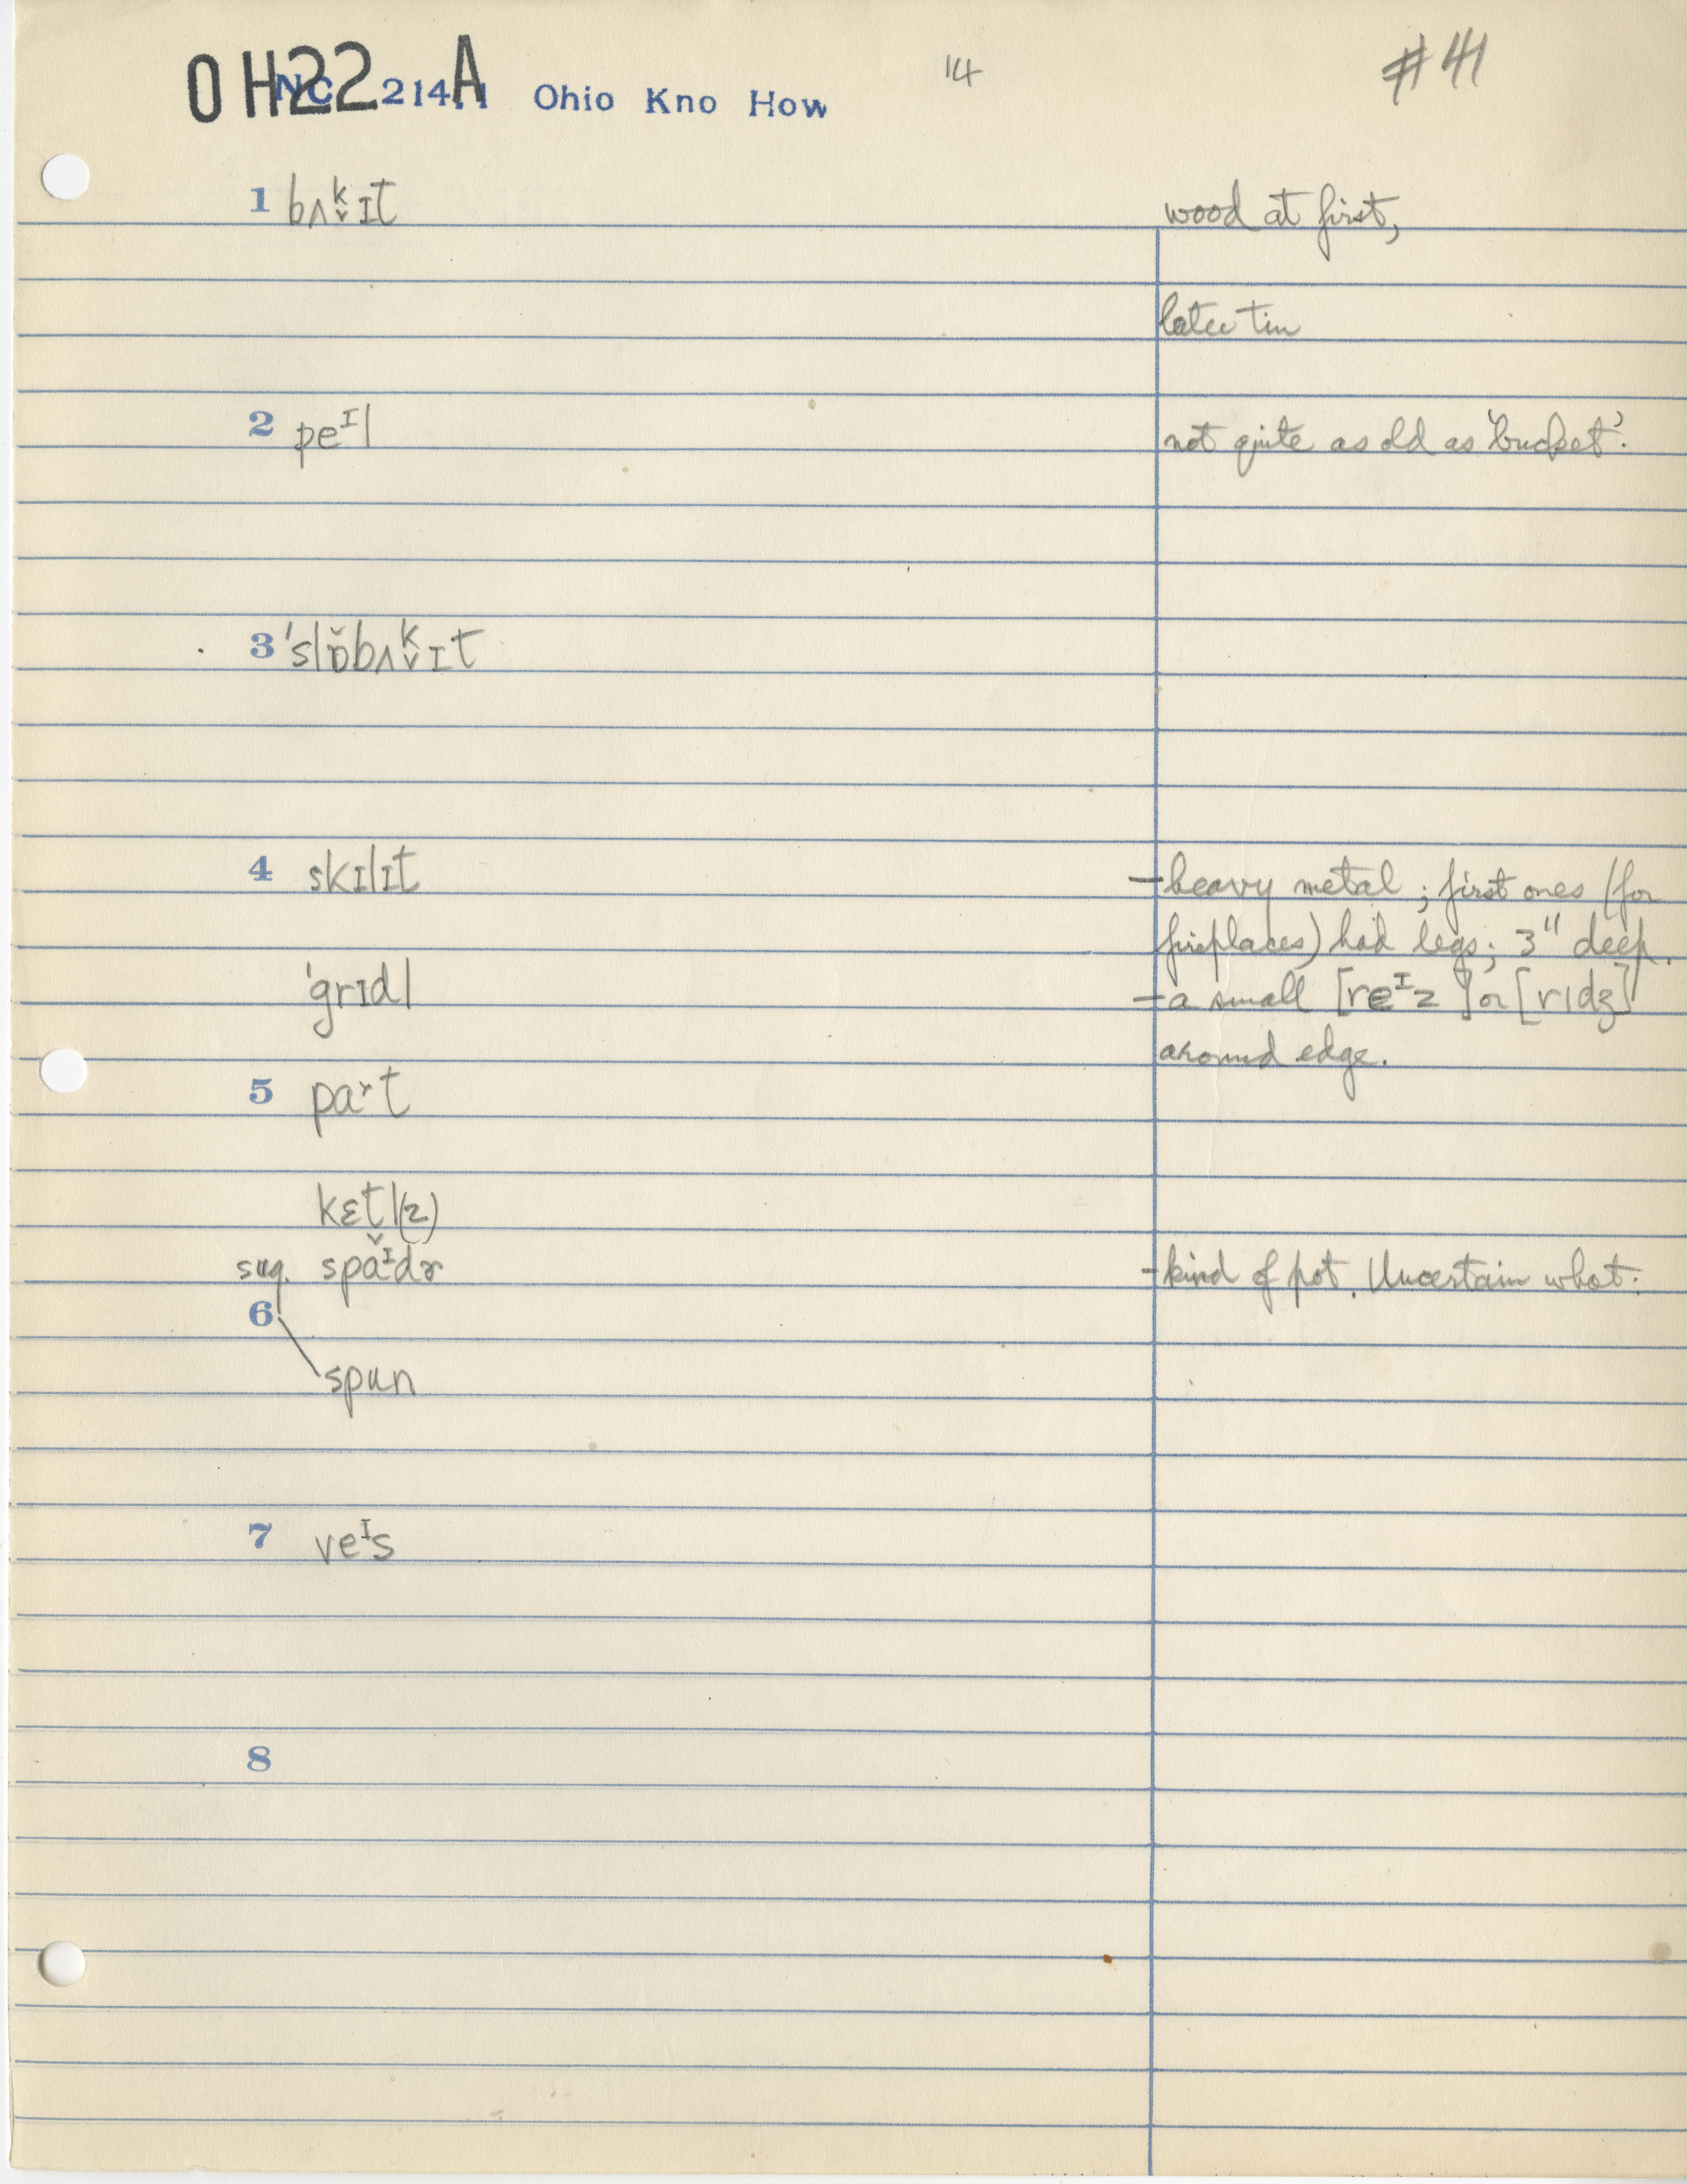 OH22 A
NC 214.1 Ohio Kno How 14 #41
1 bʌk̬ɪt wood at first,
later tin
2 peᴵl not quite as old as 'bucket'.
3 'slɒ̆bʌk̬ɪt
4 skɪlɪt –heavy metal; first ones (for
fireplaces) had legs; 3" deep.
'grɪdl –a small [reᴵz] or [rɪdʒ]
around edge.
5 pa˞t
kɛt̬l(z)
sug. spaᴵdɚ –kind of pot. Uncertain what.
6
spun
7 veᴵs
8